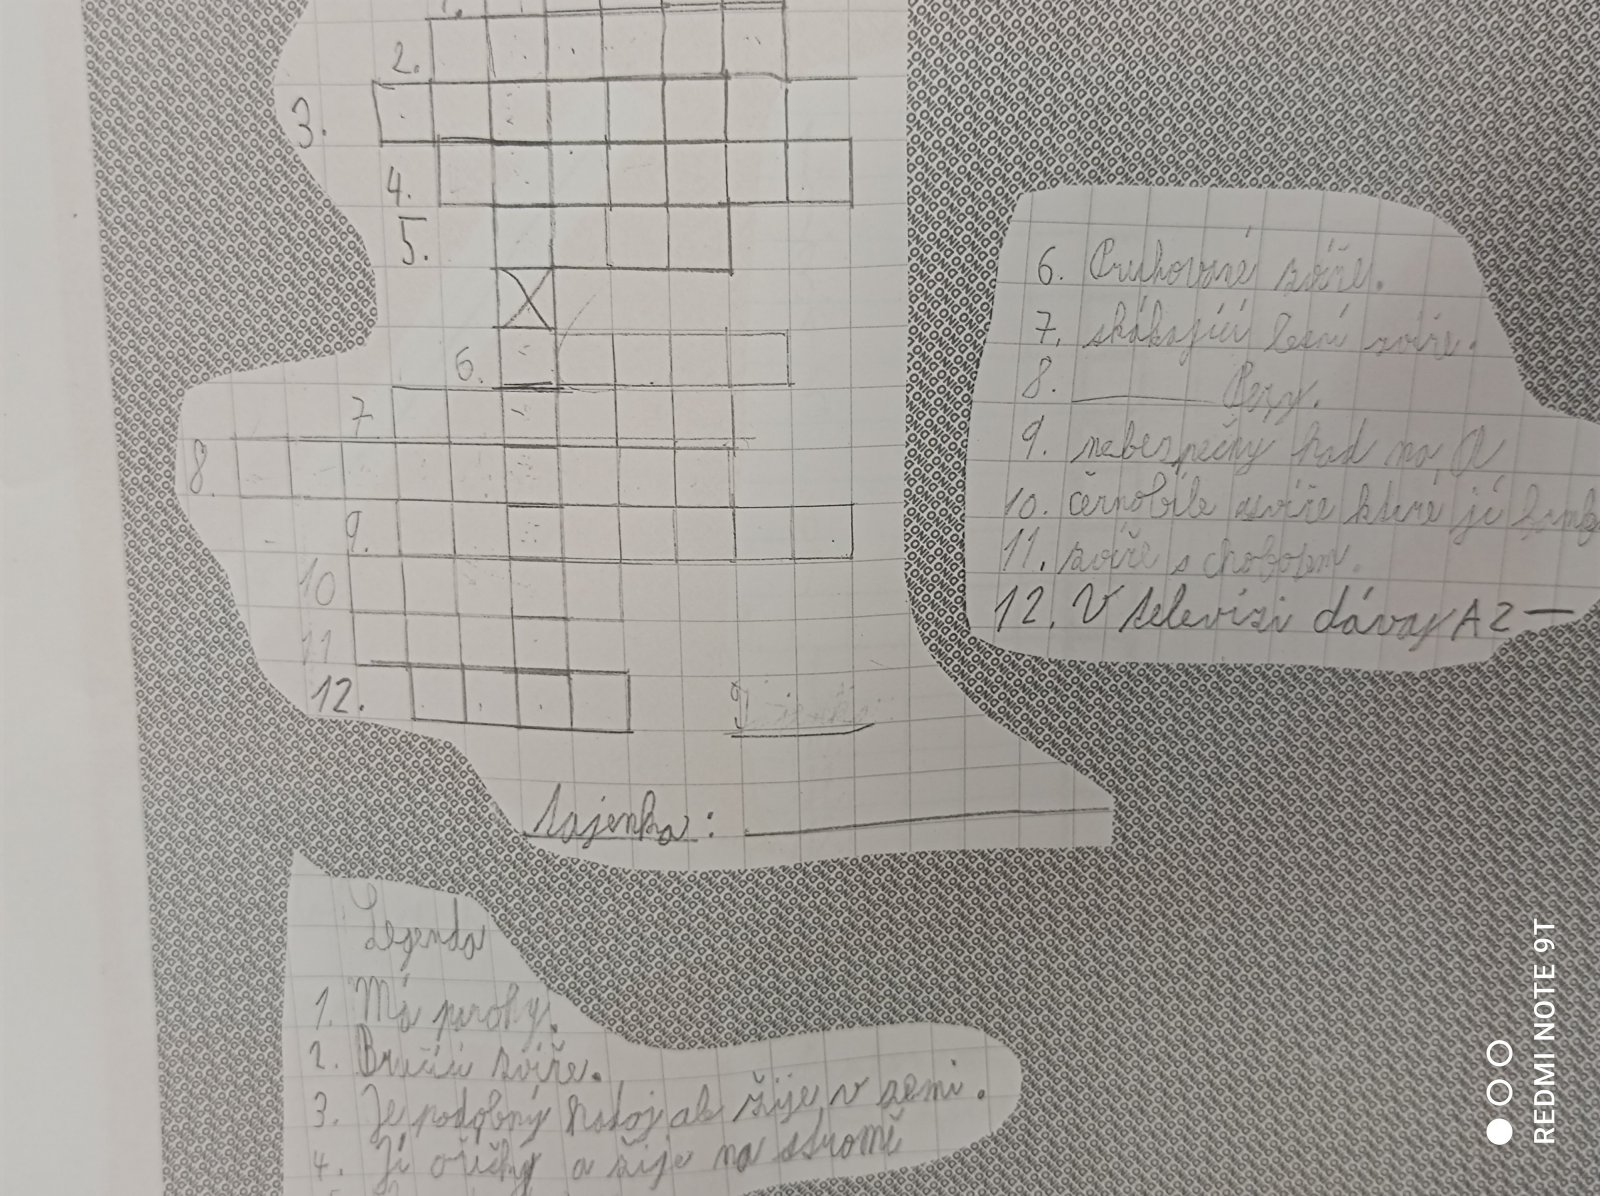 2.
3.
4.
5.
X
6.
7
8.
9.
10
11
12.
Tajenka:
6. Pruhované zvíře.
7. skákající lesní zvíře.
8. Pezy.
9. nebezpečný had na A
10. černobíle zvíře které jí bamb
11. zvíře s chobotem.
12. V televizi dávaj AZ —
Legenda
1. Má parohy.
2. Bručící zvíře.
3. Je podobný hadoj ale žije v zemi.
4. Jí oříšky a žije na stromě
REDMI NOTE 9T